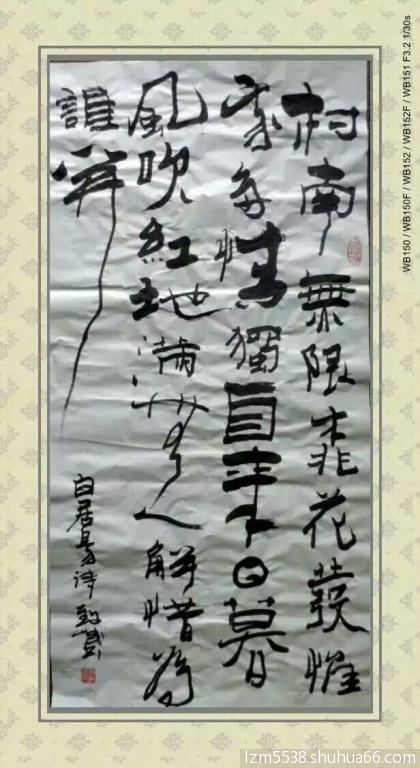 村南無限桃花發惟
我多情獨自来日暮
風吹紅地滿無人解惜為
誰开
白居易诗
WB150 / WB150F / WB152 / WB152F / WB151 F3.2 1/30s
lzm5538.shuhua66.com